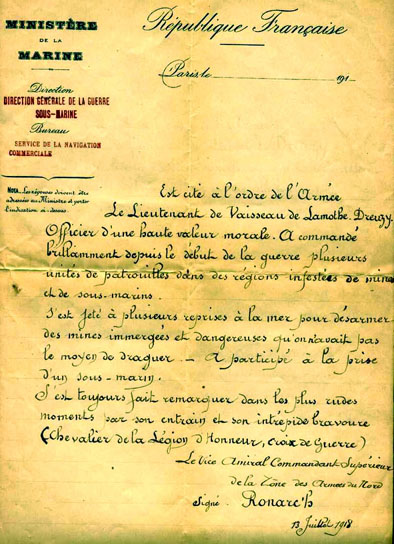 MINISTÈRE
DE LA
MARINE
République Française
Paris le 191
Direction
DIRECTION GÉNÉRALE DE LA GUERRE
SOUS-MARINE
Bureau
SERVICE DE LA NAVIGATION
COMMERCIALE
NOTA. Les réponses doivent être
adressées au Ministre et porter
l'indication ci-dessus.
Est cité à l'ordre de l'Armée
Le Lieutenant de Vaisseau de Lamothe-Dreuzy
Officier d'une haute valeur morale. A commandé
brillamment depuis le début de la guerre plusieurs
unités de patrouilles dans des régions infestées de mines
et de sous-marins.
S'est jeté à plusieurs reprises à la mer pour désarmer
des mines immergées et dangereuses qu'on n'avait pas
le moyen de draguer. — A participé à la prise
d'un sous-marin.
S'est toujours fait remarquer dans les plus rudes
moments par son entrain et son intrépide bravoure
(Chevalier de la Légion d'Honneur, croix de Guerre)
Le Vice Amiral Commandant Supérieur
de la Zône des Armées du Nord
Signé Ronarc'h
13 Juillet 1918